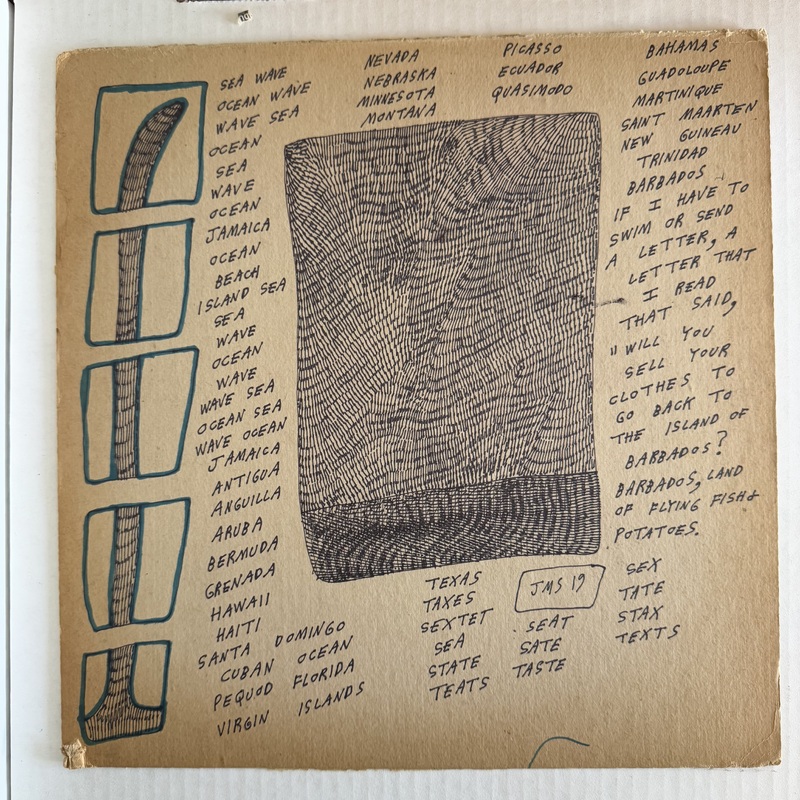 SEA WAVE
OCEAN WAVE
WAVE SEA
OCEAN
SEA
WAVE
OCEAN
JAMAICA
OCEAN
BEACH
ISLAND SEA
SEA
WAVE
OCEAN
WAVE
WAVE SEA
OCEAN SEA
WAVE OCEAN
JAMAICA
ANTIGUA
ANGUILLA
ARUBA
BERMUDA
GRENADA
HAWAII
HAITI
SANTA DOMINGO
CUBAN OCEAN
PEQUOD FLORIDA
VIRGIN ISLANDS
NEVADA
NEBRASKA
MINNESOTA
MONTANA
PICASSO
ECUADOR
QUASIMODO
BAHAMAS
GUADOLOUPE
MARTINIQUE
SAINT MAARTEN
NEW GUINEAU
TRINIDAD
BARBADOS
IF I HAVE TO
SWIM OR SEND
A LETTER, A
LETTER THAT
I READ
THAT SAID,
"WILL YOU
SELL YOUR
CLOTHES TO
GO BACK TO
THE ISLAND OF
BARBADOS?
BARBADOS, LAND
OF FLYING FISH &
POTATOES.
TEXAS
TAXES
SEXTET
SEA
STATE
TEATS
JMS 19
SEAT
SATE
TASTE
SEX
TATE
STAX
TEXTS